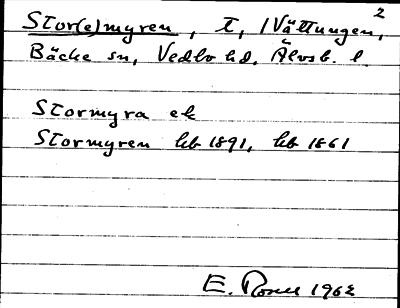 2
Stor(e)myren, t, 1 Vättungen,
Bäcke sn, Vedbo hd, Älvsb. l.
Stormyra ek
Stormyren kb 1891, kb 1861
E. 1962